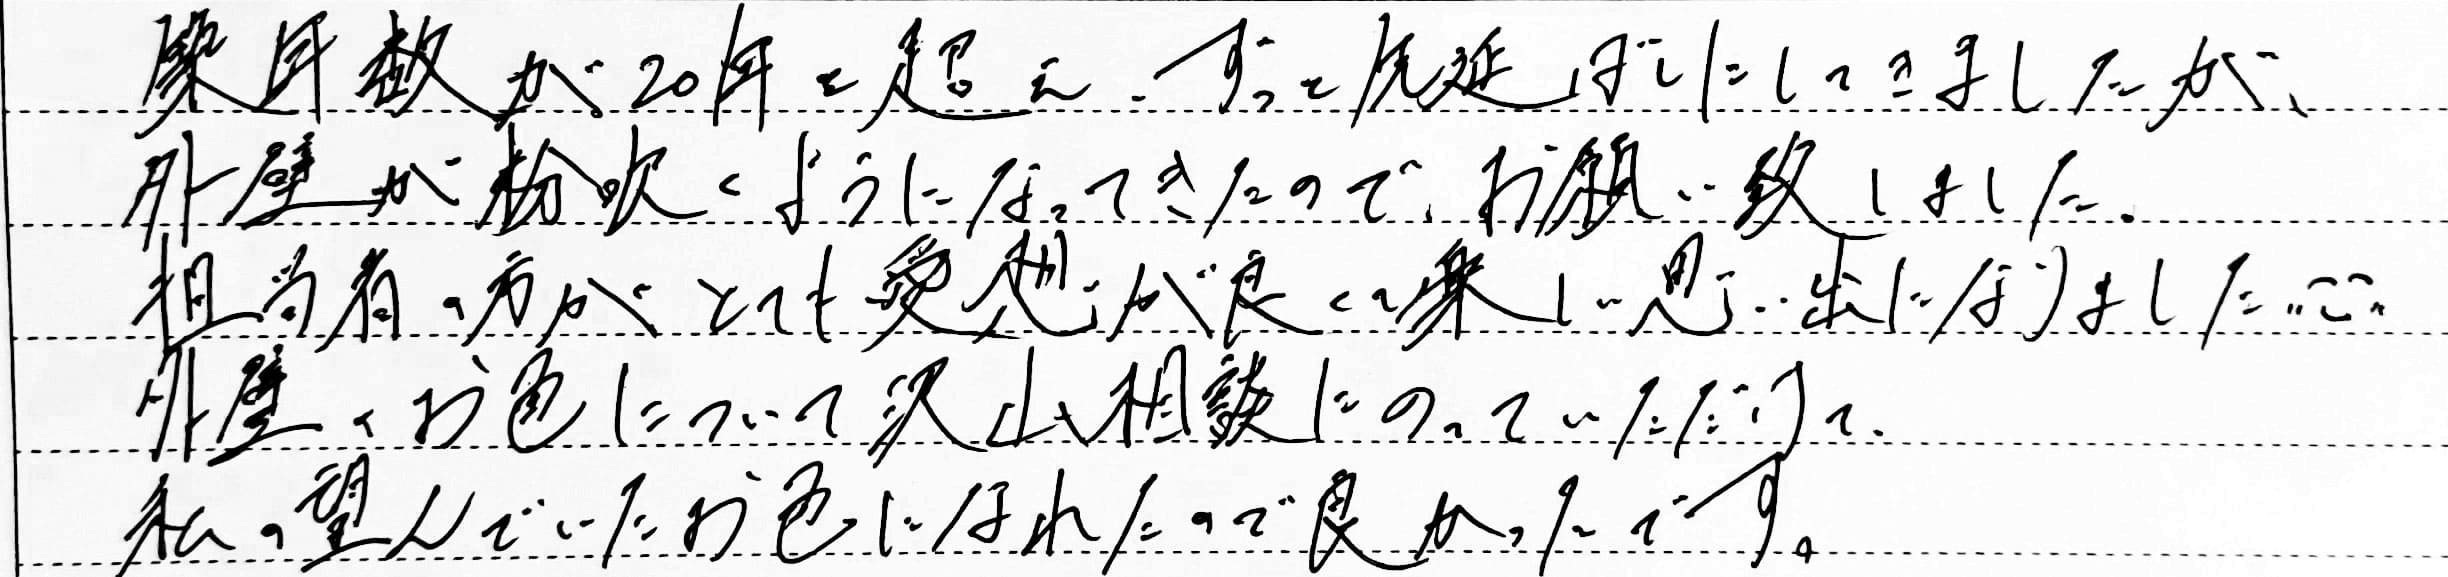 築年数が20年を超え、ずっと先延ばしにしてきましたが、
外壁が粉吹くようになってきたので、お願い致しました。
担当者の方がとても愛想が良くて楽しい思い出になりました
外壁のお色について沢山相談にのっていただけて、
私の望んでいたお色になれたので良かったです。